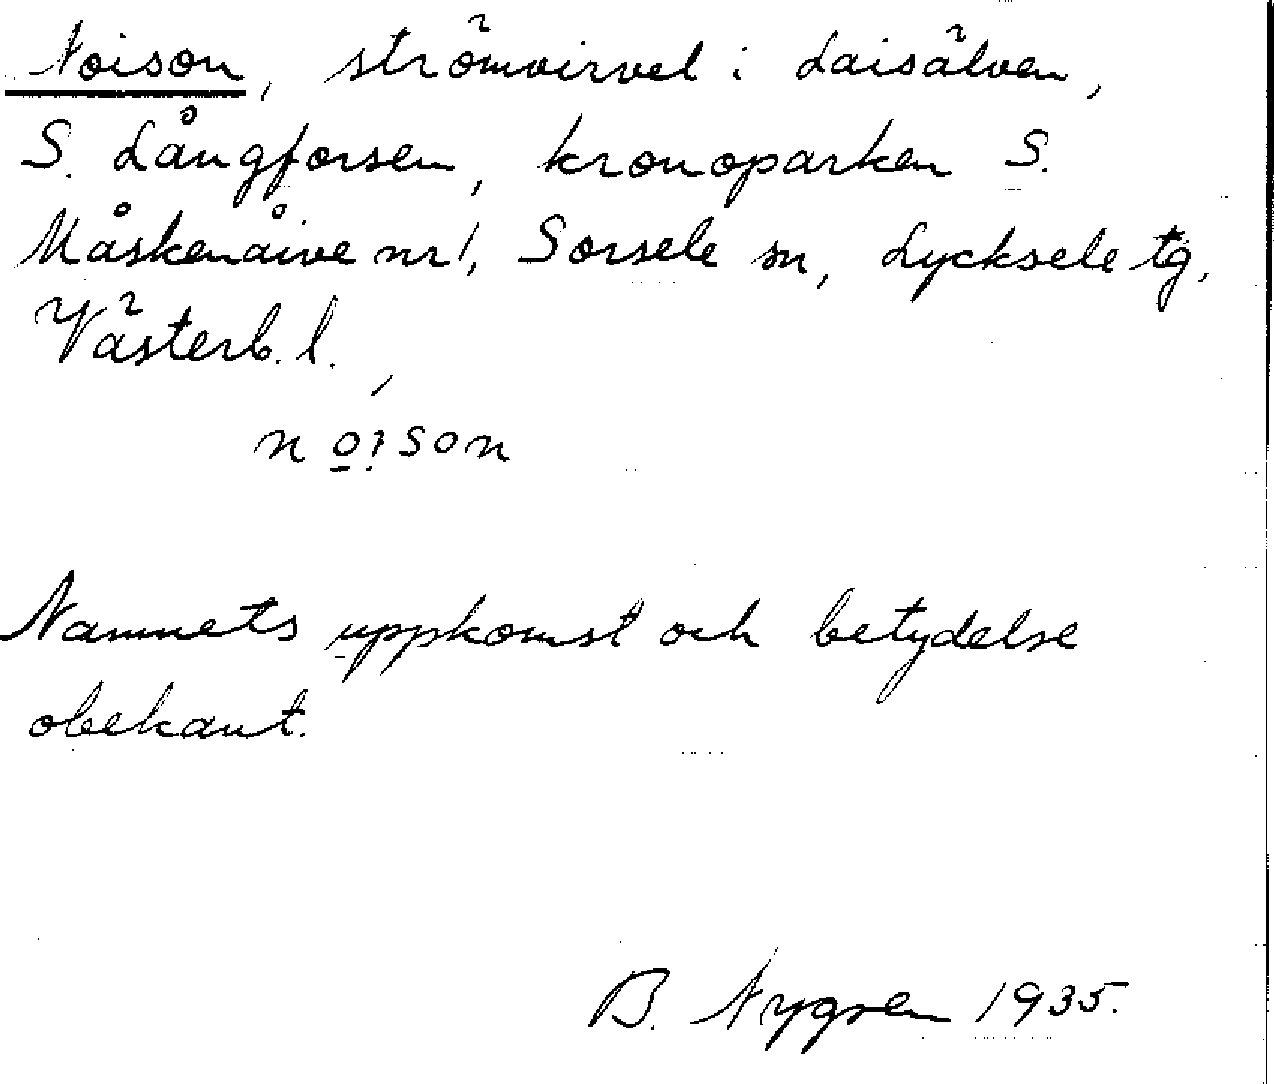 Noison, strömvirvel i Laisälven,
S. Långforsen, kronoparken S.
Måskenåive nr 1, Sorsele sn, Lycksele tg,
Västerb. l.
Namnets uppkomst och betydelse
obekant.
B. Nygren 1935.